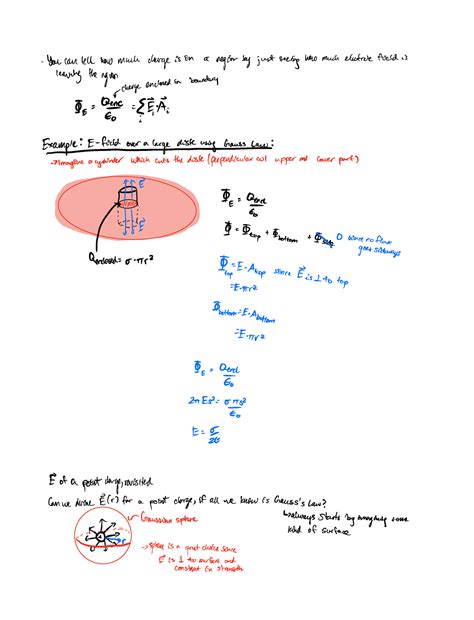 - You can tell how much charge is in a region by just seeing how much electric field is
leaving the region
charge enclosed in boundary
Φ_E = Qenc/ε₀ = Σ E⃗ᵢ·A⃗ᵢ
Example: E-field over a large disk using Gauss Law:
→ Imagine a cylinder which cuts the disk (perpendicular w/ upper and lower part)
E⃗
E⃗
Qenclosed = σ·πr²
Φ_E = Qenc/ε₀
Φ = Φtop + Φbottom + Φsides 0 since no flux
goes sideways
Φtop = E·Atop since E⃗ is ⊥ to top
= E·πr²
Φbottom = E·Abottom
= E·πr²
Φ_E = Qencl/ε₀
E = σ/2ε₀
E⃗ of a point charge, revisited
Can we derive E⃗(r) for a point charge, if all we know is Gauss's Law?
↳ always starts by imagining some
kind of surface
Gaussian sphere
→ sphere is a great choice since
E⃗ is ⊥ to surface and
constant in strength